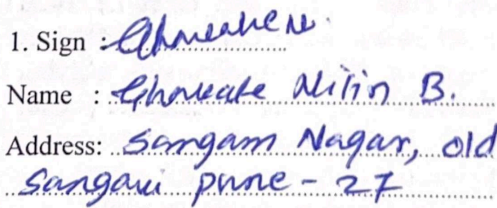 1. Sign :
Name : Ghorcate Nitin B.
Address: Sangam Nagar, old
Sangam pune - 27